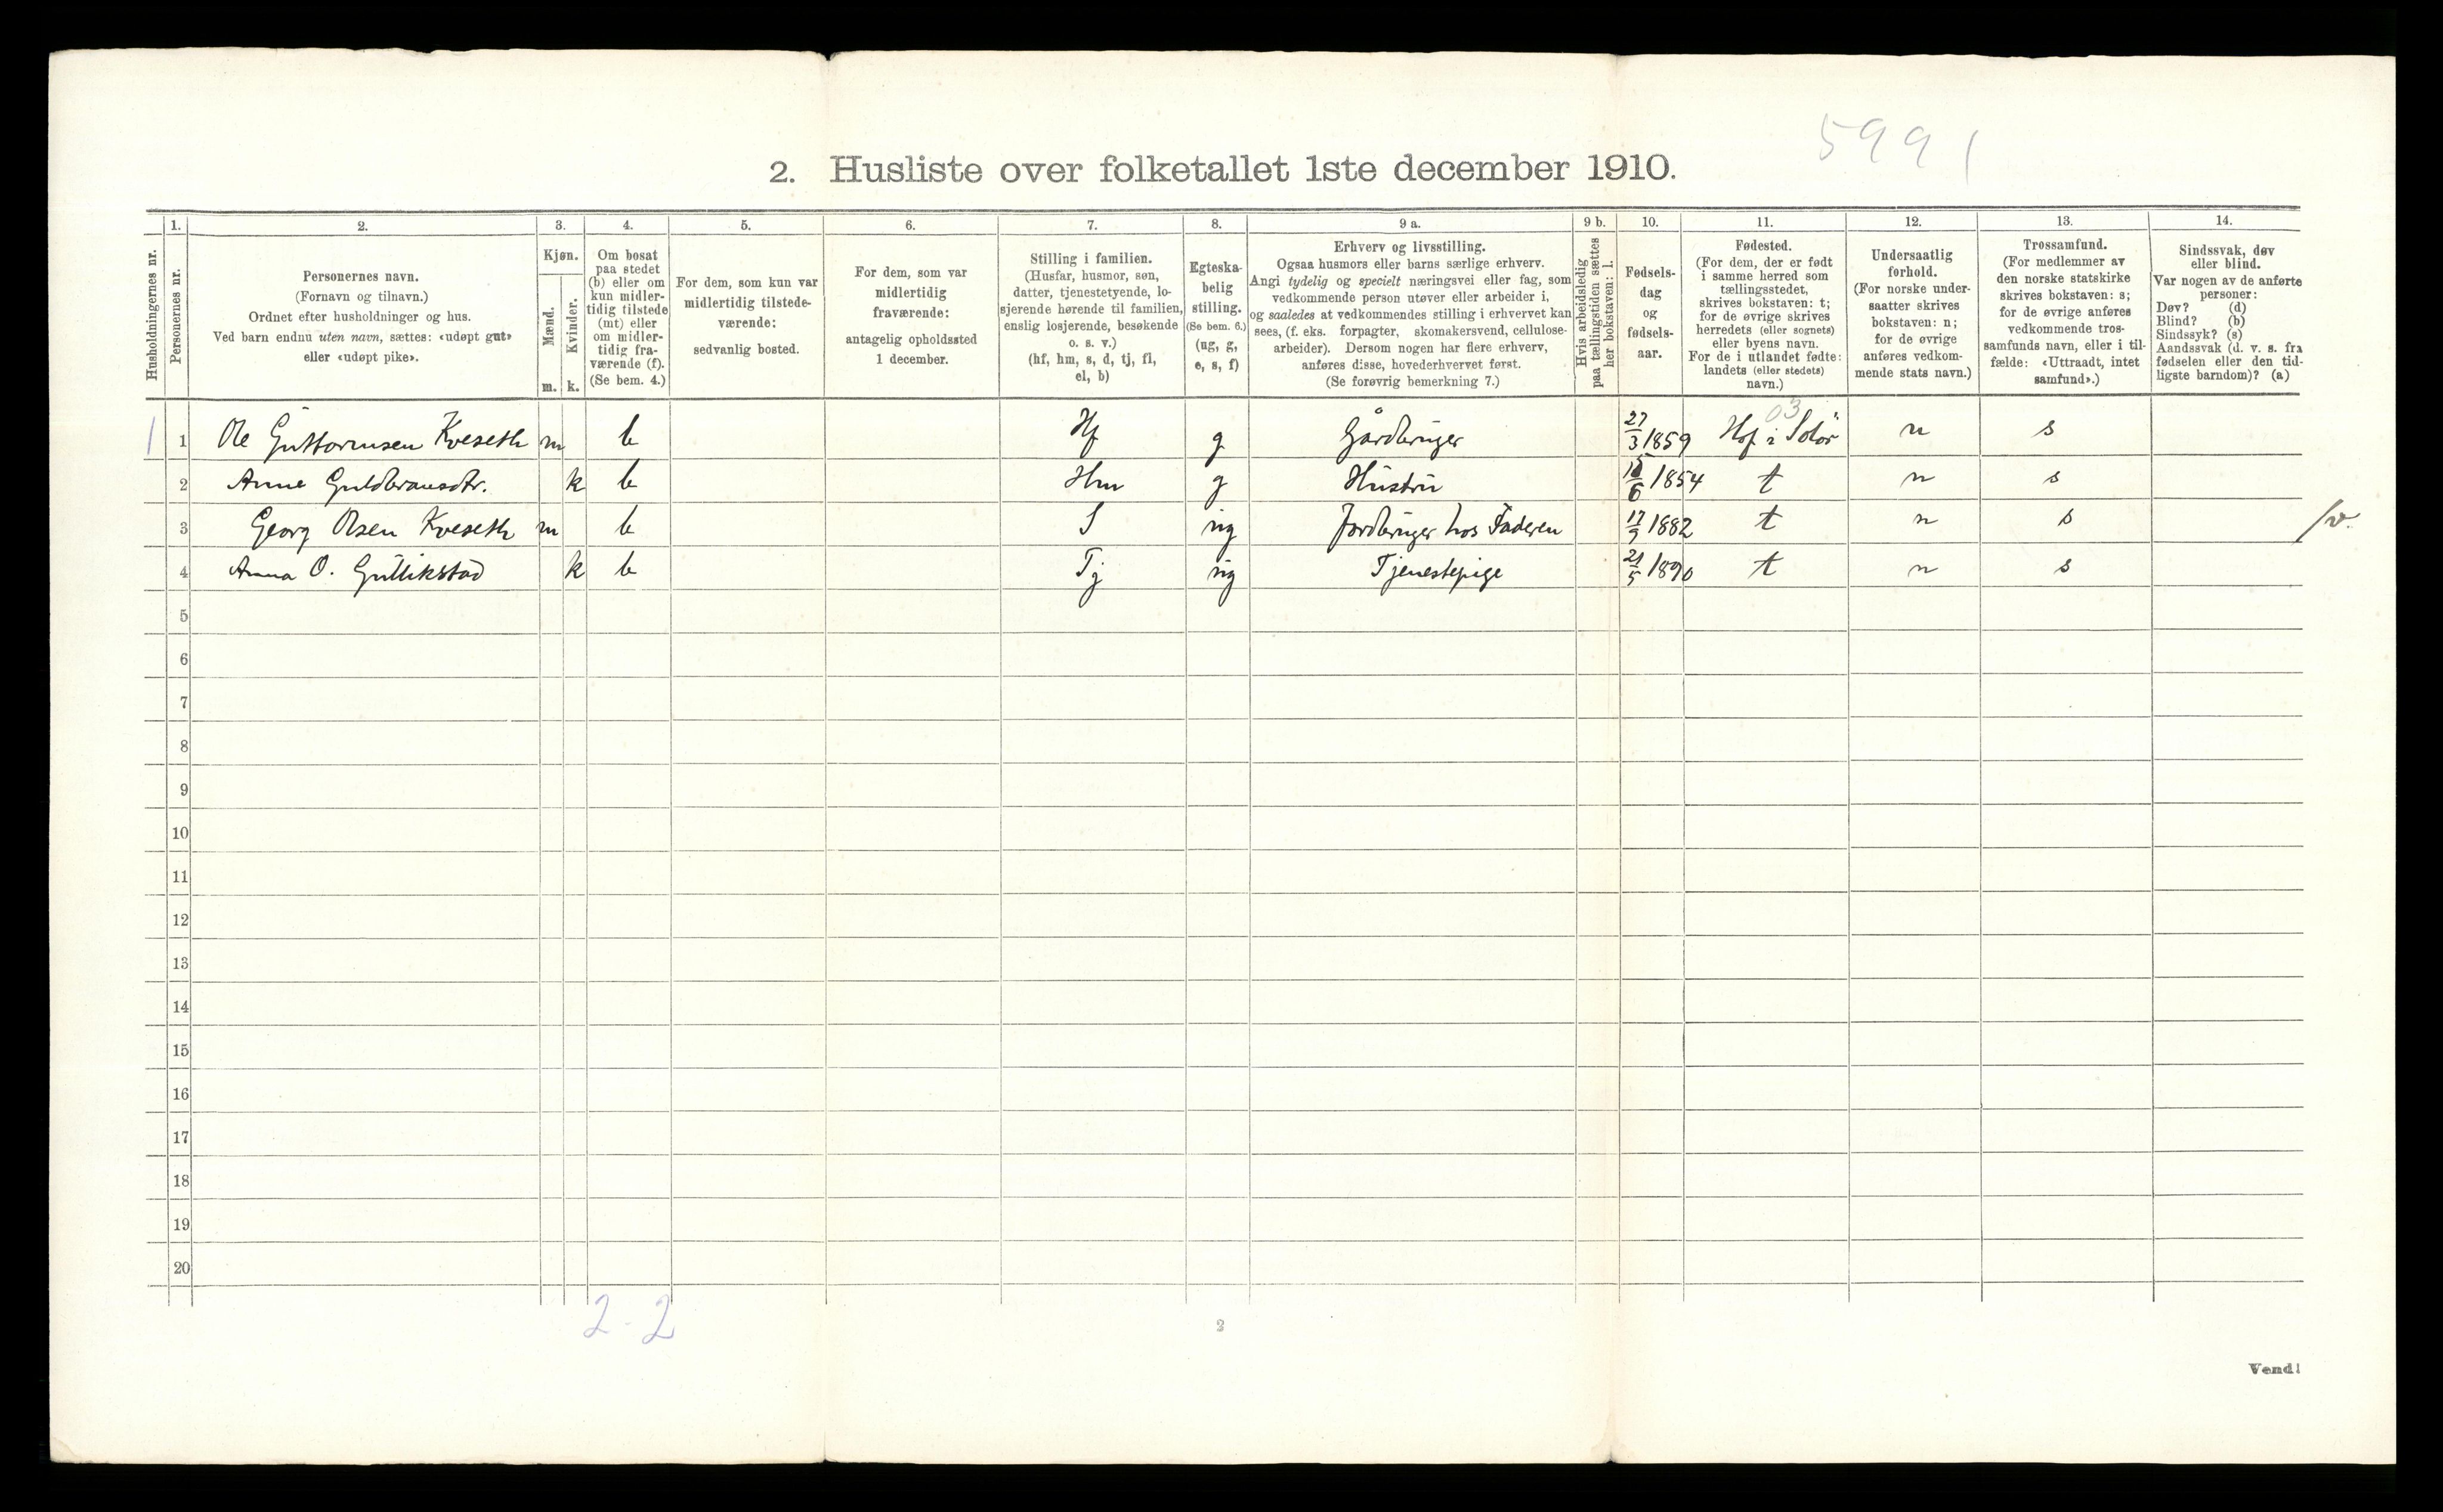 5991
2. Husliste over folketallet 1ste december 1910.
Husholdningernes nr.
1.
Personernes nr.
2.
Personernes navn.
(Fornavn og tilnavn.)
Ordnet efter husholdninger og hus.
Ved barn endnu uten navn, sættes: «udøpt gut»
eller «udøpt pike».
3.
Kjøn.
Mænd.
m.
Kvinder.
k.
4.
Om bosat
paa stedet
(b) eller om
kun midler-
tidig tilstede
(mt) eller
om midler-
tidig fra-
værende (f).
(Se bem. 4.)
5.
For dem, som kun var
midlertidig tilstede-
værende:
sedvanlig bosted.
6.
For dem, som var
midlertidig
fraværende:
antagelig opholdssted
1 december.
7.
Stilling i familien.
(Husfar, husmor, søn,
datter, tjenestetyende, lo-
sjerende hørende til familien,
enslig losjerende, besøkende
o. s. v.)
(hf, hm, s, d, tj, fl,
el, b)
8.
Egteska-
belig
stilling.
(Se bem. 6.)
(ug, g,
e, s, f)
9 a.
Erhverv og livsstilling.
Ogsaa husmors eller barns særlige erhverv.
Angi tydelig og specielt næringsvei eller fag, som
vedkommende person utøver eller arbeider i,
og saaledes at vedkommendes stilling i erhvervet kan
sees, (f. eks. forpagter, skomakersvend, cellulose-
arbeider). Dersom nogen har flere erhverv,
anføres disse, hovederhvervet først.
(Se forøvrig bemerkning 7.)
9 b.
Hvis arbeidsledig
paa tællingstiden sættes
her bokstaven: l.
10.
Fødsels-
dag
og
fødsels-
aar.
11.
Fødested.
(For dem, der er født
i samme herred som
tællingsstedet,
skrives bokstaven: t;
for de øvrige skrives
herredets (eller sognets)
eller byens navn.
For de i utlandet fødte:
landets (eller stedets)
navn.)
12.
Undersaatlig
forhold.
(For norske under-
saatter skrives
bokstaven: n;
for de øvrige
anføres vedkom-
mende stats navn.)
13.
Trossamfund.
(For medlemmer av
den norske statskirke
skrives bokstaven: s;
for de øvrige anføres
vedkommende tros-
samfunds navn, eller i til-
fælde: «Uttraadt, intet
samfund».)
14.
Sindssvak, døv
eller blind.
Var nogen av de anførte
personer:
Døv? (d)
Blind? (b)
Sindssyk? (s)
Aandssvak (d. v. s. fra
fødselen eller den tid-
ligste barndom)? (a)
03
1 1 Ole Guttormsen Kveseth m b Hf g Gårdbruger 27/3 1859 Hof i Solør n s
2 Anne Guldbransdtr. k b Hm g Hustru 6 1854 t n s
3 Georg Olsen Kveseth m b S ug Jordbruger hos Faderen 17/9 1882 t n s
4 Anna O. Gullikstad k b Tj ug Tjenestepige 21/5 1890 t n s
5
6
7
8
9
10
11
12
13
14
15
16
17
18
19
20
2-2
2
Vend!